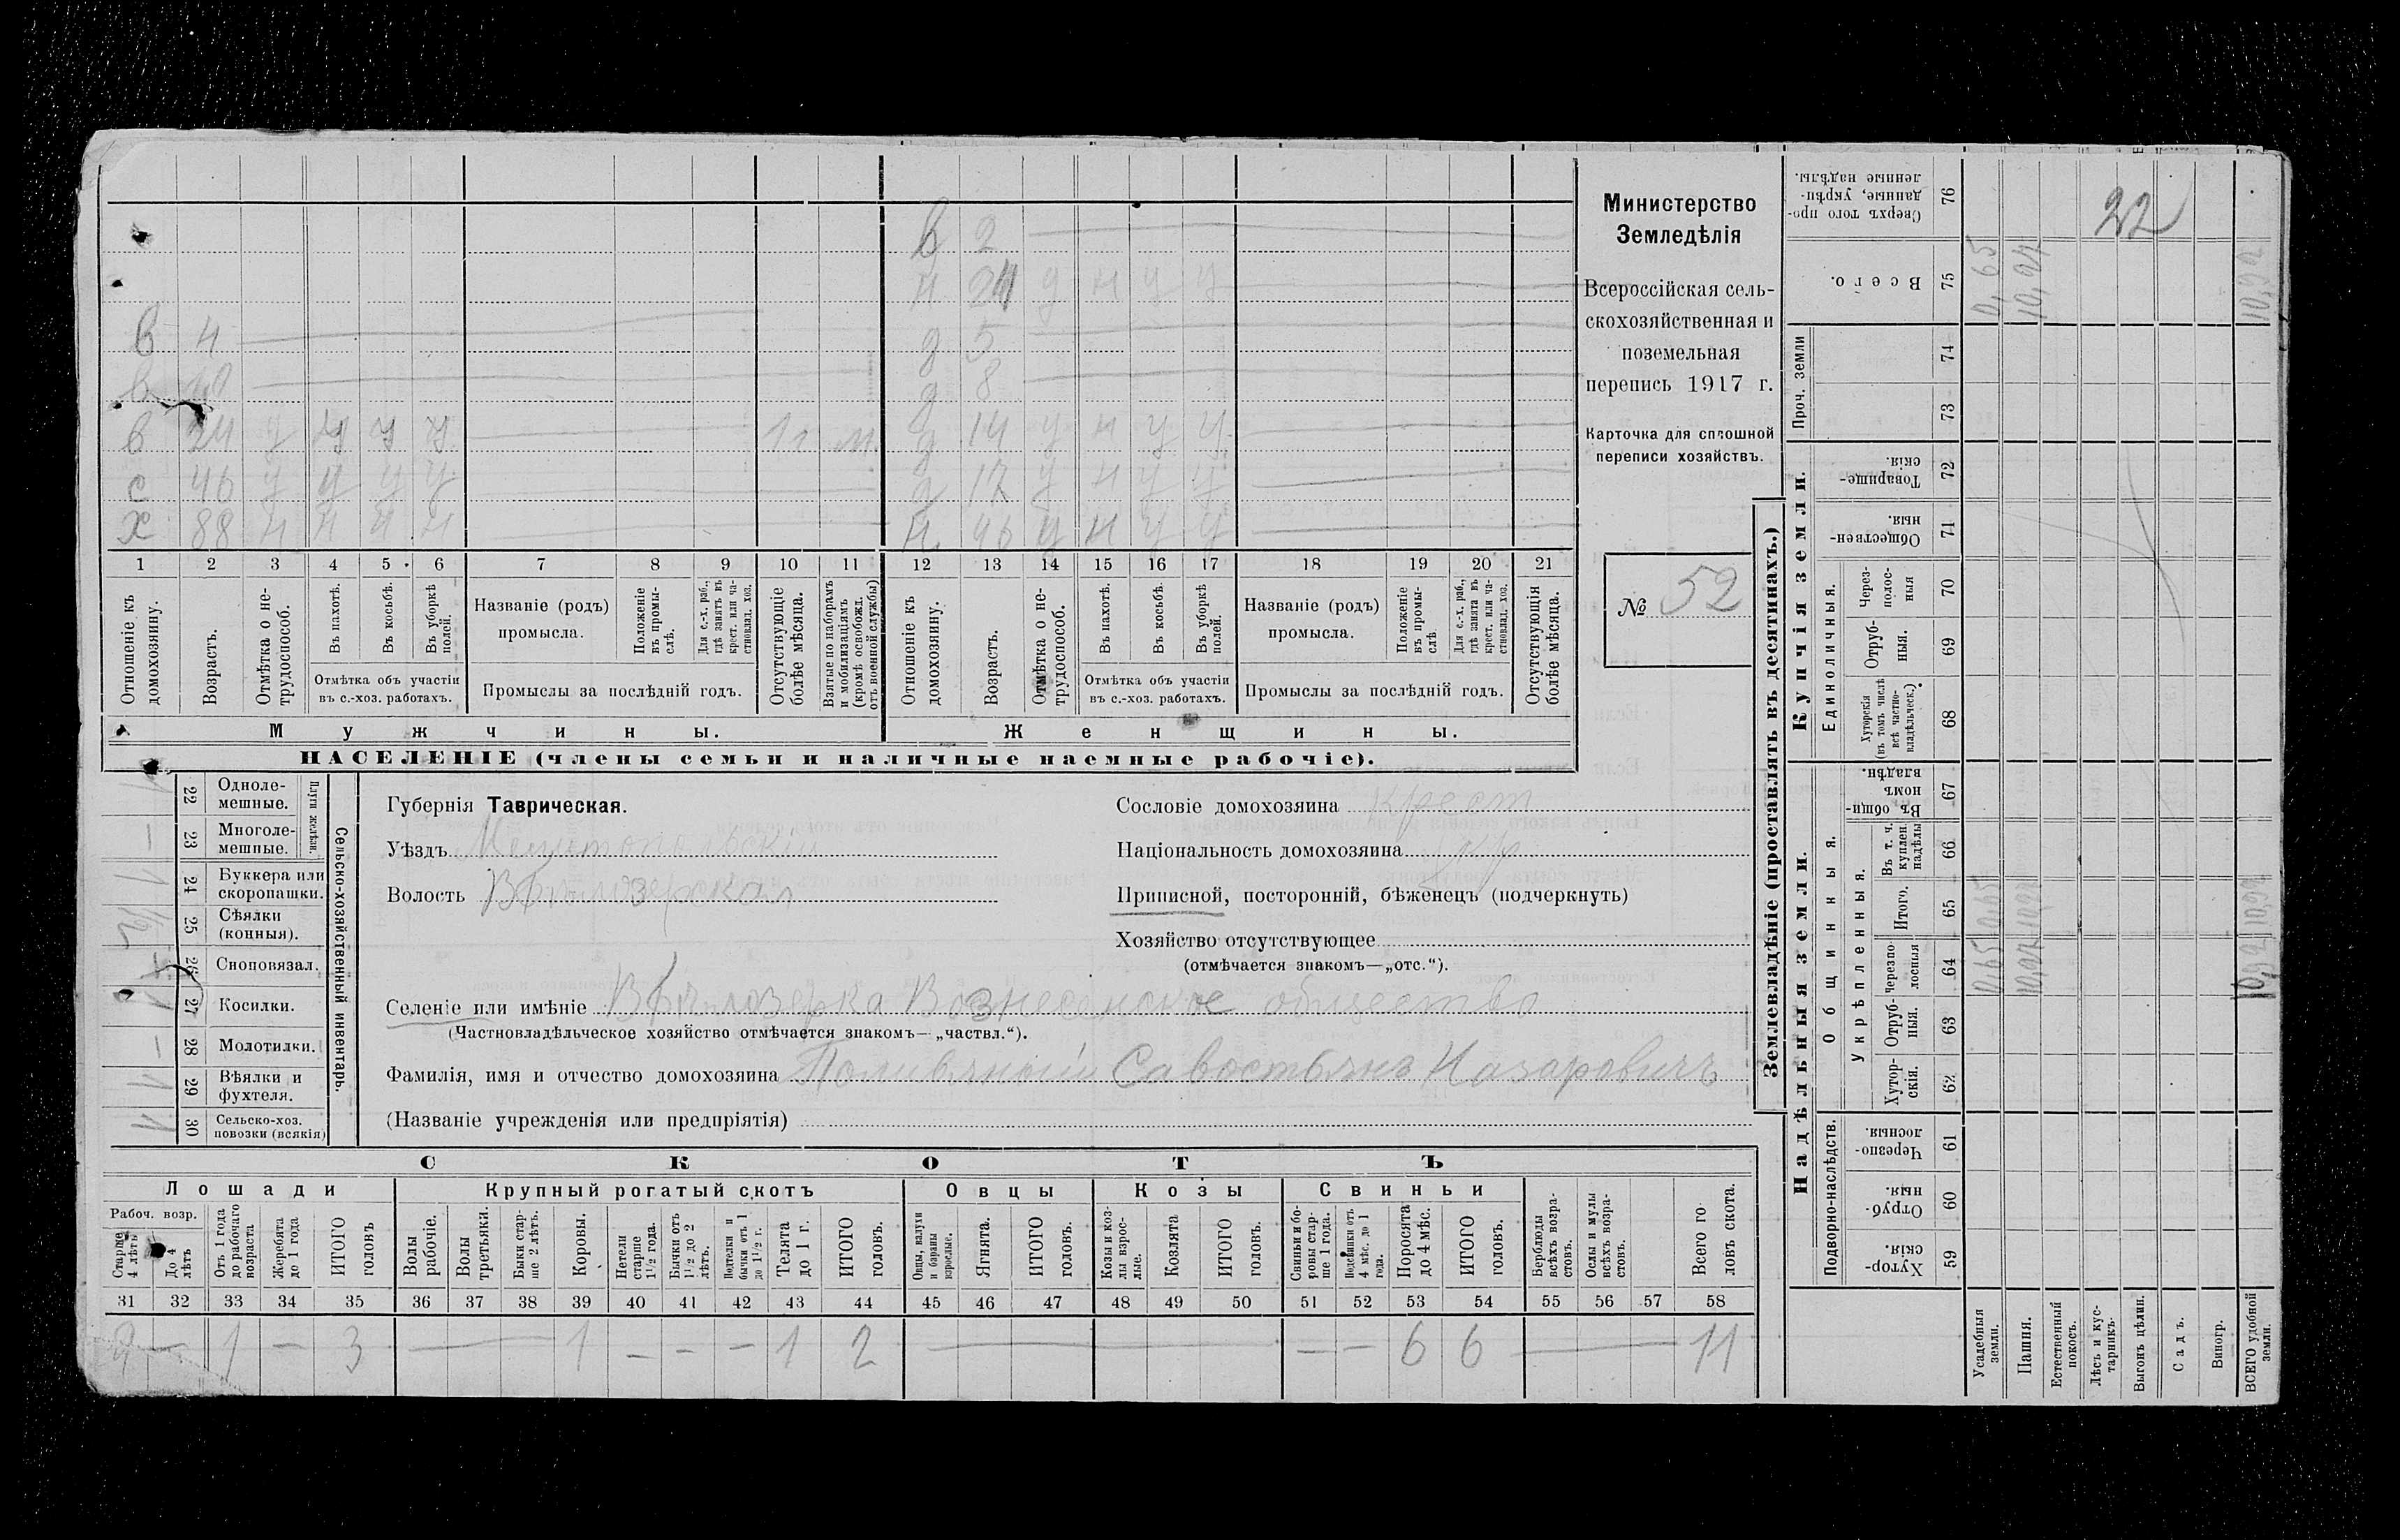 в 2
н 24 у н у у
в 4
д 5
в 10
д 8
в 24 у у у у 1г м.
д 14 у н у у
с 46 у у у у
д 17 у н у у
х 88 н н н н
н 46 у н у у
1 2 3 4 5 6 7 8 9 10 11 12 13 14 15 16 17 18 19 20 21
Отношеніе къ домохозяину.
Возрастъ.
Отмѣтка о не-трудоспособ.
Въ пахотѣ.
Въ косьбѣ.
Въ уборкѣ полей.
Отмѣтка объ участіи въ с.-хоз. работахъ.
Названіе (родъ) промысла.
Положеніе въ промы-слѣ.
Для с.-х. раб., гдѣ занятъ въ крест. или ча-стновлад. хоз.
Промыслы за послѣдній годъ.
Отсутствующіе болѣе мѣсяца.
Взятые по наборамъ и мобилизаціямъ (кромѣ освобожд. отъ военной службы)
Отношеніе къ домохозяину.
Возрастъ.
Отмѣтка о не-трудоспособ.
Въ пахотѣ.
Въ косьбѣ.
Въ уборкѣ полей.
Отмѣтка объ участіи въ с.-хоз. работахъ.
Названіе (родъ) промысла.
Положеніе въ промы-слѣ
Для с.-х. раб., гдѣ занята въ крест. или ча-стновлад. хоз.
Промыслы за послѣдній годъ.
Отсутствующія болѣе мѣсяца.
Мужчины.
Женщины.
НАСЕЛЕНІЕ (члены семьи и наличные наемные рабочіе).
Министерство
Земледѣлія
Всероссійская сель-
скохозяйственная и
поземельная
перепись 1917 г.
Карточка для сплошной
переписи хозяйствъ.
№ 52
Сельско-хозяйственный инвентарь.
Плуги желѣзн.
22 Одноле-мешные.
23 Многоле-мешные. —
24 Буккера или скоропашки.
25 Сѣялки (конныя).
26 Сноповязал.
27 Косилки.
28 Молотилки. —
29 Вѣялки и фухтеля.
30 Сельско-хоз. повозки (всякія)
Губернія Таврическая.
Уѣздъ Мелитопольскій
Волость Бѣлозерская
Сословіе домохозяина крест
Національность домохозяина
Приписной, посторонній, бѣженецъ (подчеркнуть)
Хозяйство отсутствующее
(отмѣчается знакомъ—„отс.“).
Селеніе или имѣніе Бѣлозерка Вознесенское общество
(Частновладѣльческое хозяйство отмѣчается знакомъ—„частвл.“).
Фамилія, имя и отчество домохозяина Поливяный Савостьянъ Назаровичъ
(Названіе учрежденія или предпріятія)
СКОТЪ
Лошади Крупный рогатый скотъ Овцы Козы Свиньи
Рабоч. возр.
Старше 4 лѣтъ
До 4 лѣтъ
Отъ 1 года до рабочаго возраста
Жеребята до 1 года
ИТОГО головъ
Волы рабочіе.
Волы третьяки.
Быки стар-ше 2 лѣтъ.
Коровы.
Нетели старше 1½ года.
Бычки отъ 1½ до 2 лѣтъ.
Подтелки и бычки отъ 1 до 1½ г.
Телята до 1 г.
ИТОГО головъ.
Овцы, валухи и бараны взрослые.
Ягнята.
ИТОГО головъ.
Козы и коз-лы взрос-лые.
Козлята
ИТОГО головъ.
Свиньи и бо-ровы стар-ше 1 года.
Подсвинки отъ 4 мѣс. до 1 года.
Поросята до 4 мѣс.
ИТОГО головъ.
Верблюды всѣхъ возра-стовъ.
Ослы и мулы всѣхъ возра-стовъ.
Всего го-ловъ скота.
31 32 33 34 35 36 37 38 39 40 41 42 43 44 45 46 47 48 49 50 51 52 53 54 55 56 57 58
2 — 1 — 3 — 1 — — — 1 2 — — — 6 6 — 11
Землевладѣніе (проставлять въ десятинахъ.)
Купчія земли.
Надѣльныя земли.
Сверхъ того про-данные, укрѣп-ленные надѣлы. 76
Всего. 75
Проч. земли
74
73
Товарище-скія. 72
Обществен-ныя. 71
Единоличныя.
Через-полос-ныя 70
Отруб-ныя. 69
Хуторскія (въ томъ числѣ всѣ частно-владѣльческ.) 68
Общинныя.
Въ общин-номъ владѣн. 67
Укрѣпленныя.
Въ т. ч. куплен. надѣлы 66
Итого. 65
Черезпо-лосныя 64
Отруб-ныя. 63
Хутор-скія. 62
Подворно-наслѣдств.
Черезпо-лосныя. 61
Отруб-ныя. 60
Хутор-скія. 59
Усадебныя земли.
Пашня.
Естественный покосъ.
Лѣсъ и кус-тарникъ.
Выгонъ цѣлин.
Садъ.
Виногр.
ВСЕГО удобной земли.
22
0,65
10,92
0,65 0,65
10,92 10,92